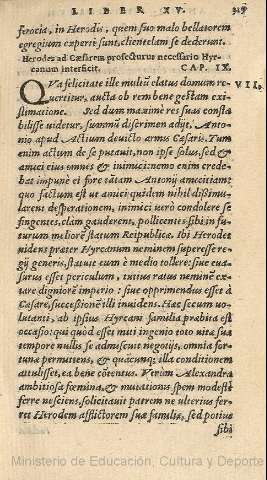 LIBER XV. 319
ferocia, in Herodis, quem suo malo bellatorem
egregium experti sunt, clientelam se dederunt.
Herodes ad Cæsarem profecturus necessario Hyr-
canum interficit. CAP. IX.
QVa felicitate ille multũ elatus domum re- VII.
uertitur, aucta ob rem bene gestam exi-
stimatione. Sed dum maximè res suas consta
bilisse uidetur, summũ discrimen adijt, Anto-
nio apud Actium deuicto armis Cæsaris. Tum
enim actum de se putauit, non ipse solus, sed &
amici eius omnes & inimici: nemo enim crede-
bat impunè ei fore tãtam Antonij amicitiam:
quo factum est ut amici quidem nihil dissimu-
larent desperationem, inimici uerò condolere se
fingentes, clam gauderent, pollicentes sibi in fu-
turum meliorẽ statum Reipublicæ. Ibi Herodes
uidens præter Hyrcanum neminem superesse re-
gij generis, statuit eum è medio tollere: siue eua-
surus esset periculum, tutius ratus neminẽ ex-
tare digniorẽ imperio: siue opprimendus esset à
Cæsare, successionẽ illi inuidens. Hæc secum uo-
lutanti, ab ipsius Hyrcani familia præbita est
occasio: qui quòd esset miti ingenio toto uitæ suæ
tempore nullis se admiscuit negotijs, omnia for-
tunæ permittens, & quæcunq; illa conditionem
attulisset, ea bene cõtentus. Verùm Alexandra
ambitiosa fœmina, & mutationis spem modestè
ferre nesciens, solicitauit patrem ne ulterius fer-
ret Herodem afflictorem suæ familiæ, sed potius
sibi
Ministerio de Educación, Cultura y Deporte